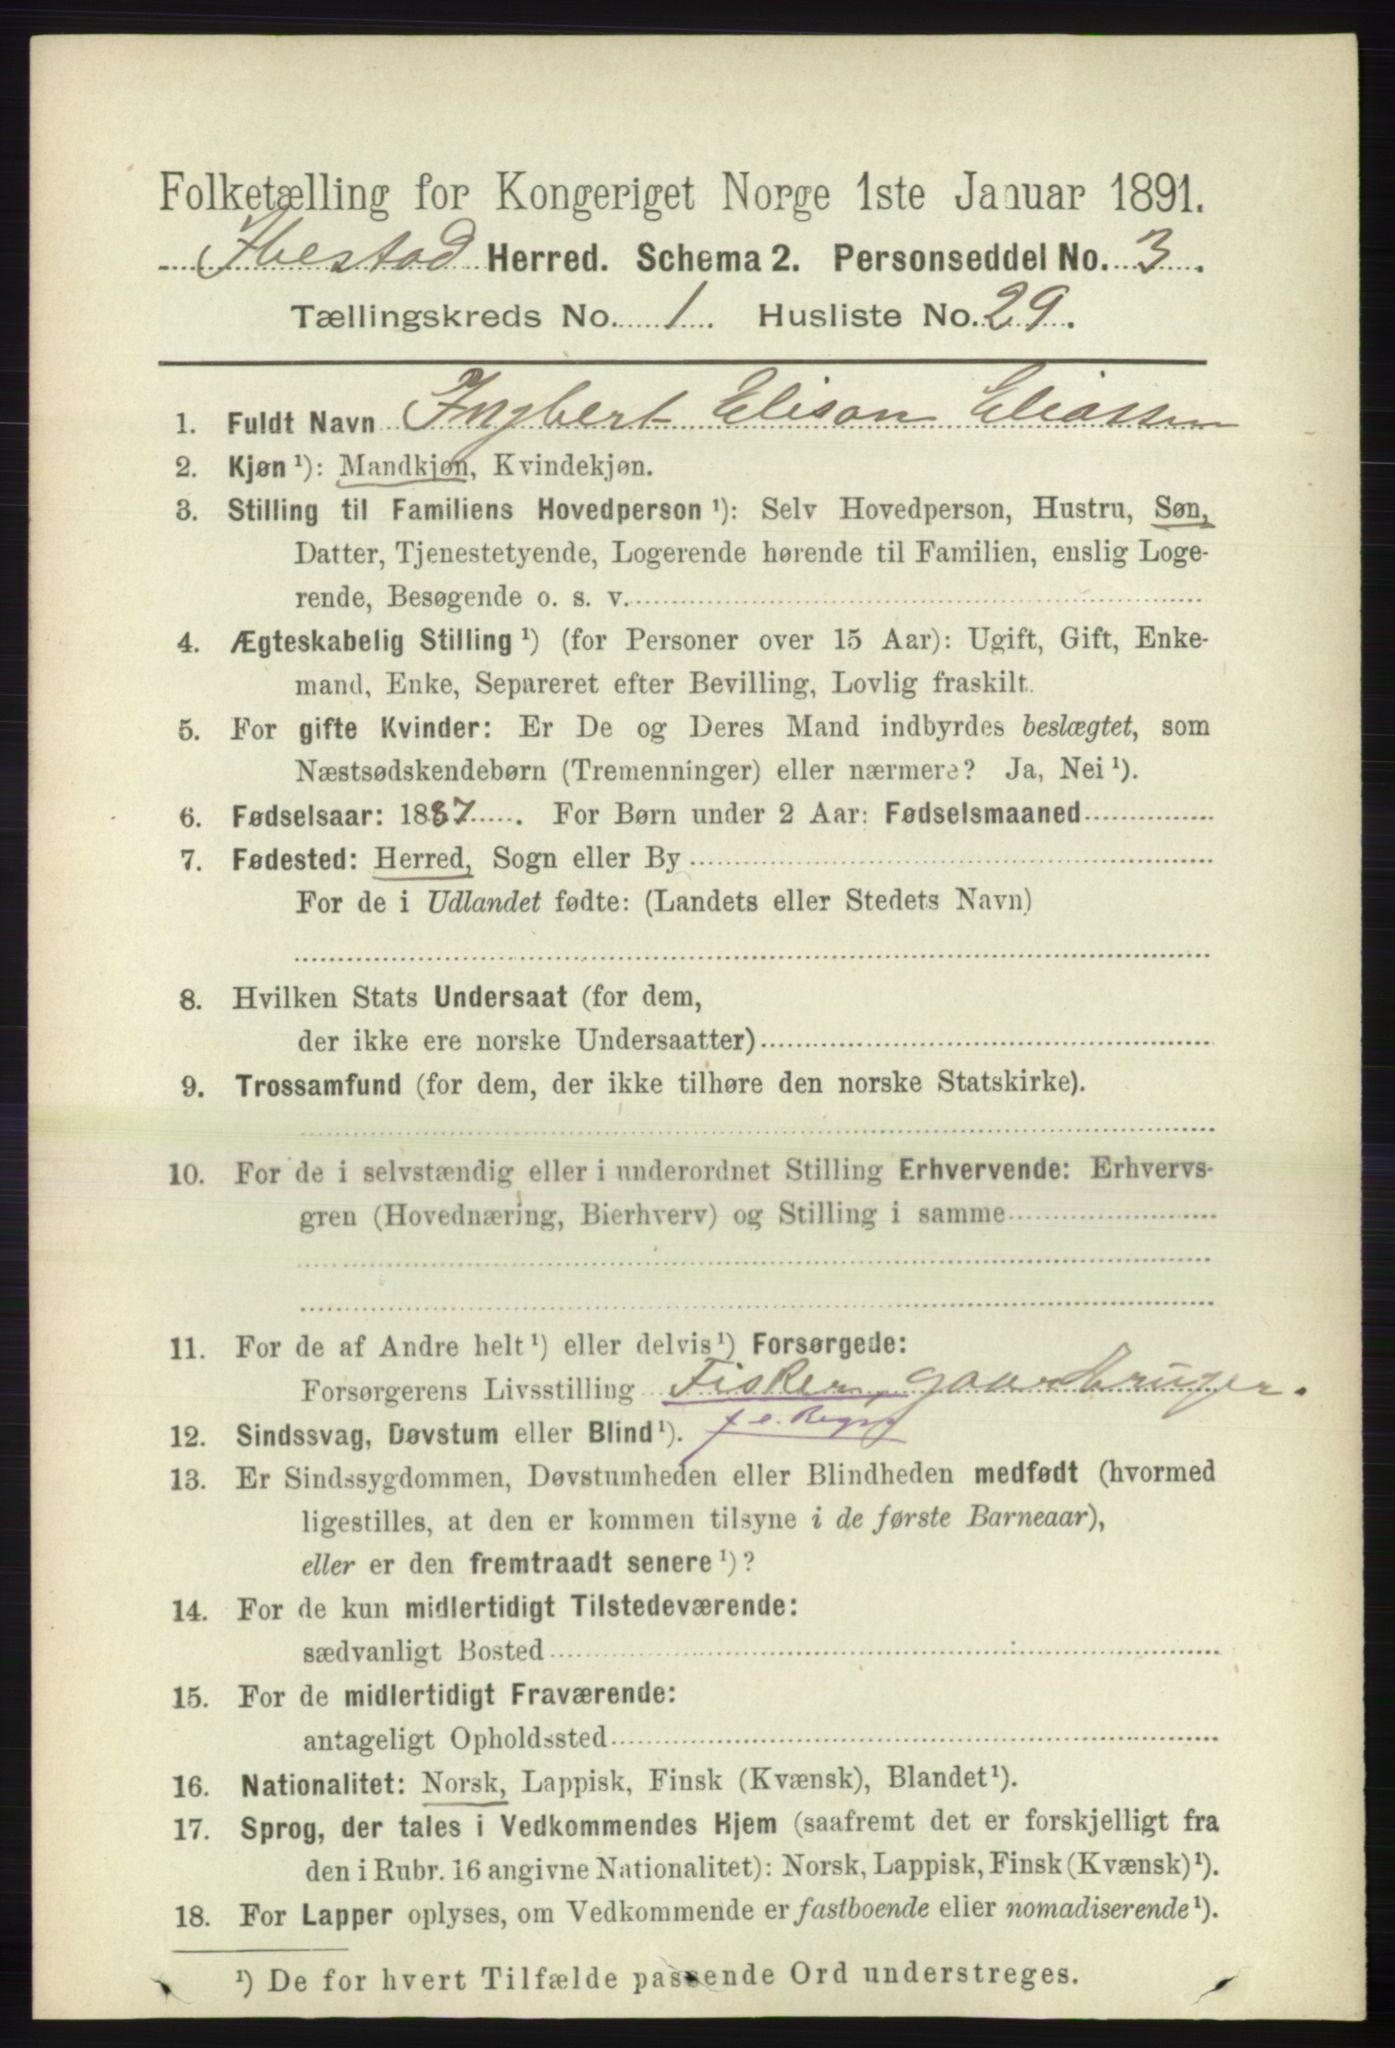 Folketælling for Kongeriget Norge 1ste Januar 1891.
Ibestad Herred. Schema 2. Personseddel No. 3.
Tællingskreds No. 1. Husliste No. 29.
1. Fuldt Navn Ingbert Elison Eliassen
2. Kjøn ¹): Mandkjøn, Kvindekjøn.
3. Stilling til Familiens Hovedperson ¹): Selv Hovedperson, Hustru, Søn,
Datter, Tjenestetyende, Logerende hørende til Familien, enslig Loge-
rende, Besøgende o. s. v.
4. Ægteskabelig Stilling ¹) (for Personer over 15 Aar): Ugift, Gift, Enke-
mand, Enke, Separeret efter Bevilling, Lovlig fraskilt.
5. For gifte Kvinder: Er De og Deres Mand indbyrdes beslægtet, som
Næstsødskendebørn (Tremenninger) eller nærmere? Ja, Nei ¹).
6. Fødselsaar: 1887. For Børn under 2 Aar: Fødselsmaaned
7. Fødested: Herred, Sogn eller By
For de i Udlandet fødte: (Landets eller Stedets Navn)
8. Hvilken Stats Undersaat (for dem,
der ikke ere norske Undersaatter)
9. Trossamfund (for dem, der ikke tilhøre den norske Statskirke).
10. For de i selvstændig eller i underordnet Stilling Erhvervende: Erhvervs-
gren (Hovednæring, Bierhverv) og Stilling i samme
11. For de af Andre helt ¹) eller delvis ¹) Forsørgede:
Forsørgerens Livsstilling Fisker, gaardbruger.
12. Sindssvag, Døvstum eller Blind ¹).
13. Er Sindssygdommen, Døvstumheden eller Blindheden medfødt (hvormed
ligestilles, at den er kommen tilsyne i de første Barneaar),
eller er den fremtraadt senere ¹)?
14. For de kun midlertidigt Tilstedeværende:
sædvanligt Bosted
15. For de midlertidigt Fraværende:
antageligt Opholdssted
16. Nationalitet: Norsk, Lappisk, Finsk (Kvænsk), Blandet ¹).
17. Sprog, der tales i Vedkommendes Hjem (saafremt det er forskjelligt fra
den i Rubr. 16 angivne Nationalitet): Norsk, Lappisk, Finsk (Kvænsk) ¹).
18. For Lapper oplyses, om Vedkommende er fastboende eller nomadiserende ¹).
¹) De for hvert Tilfælde passende Ord understreges.